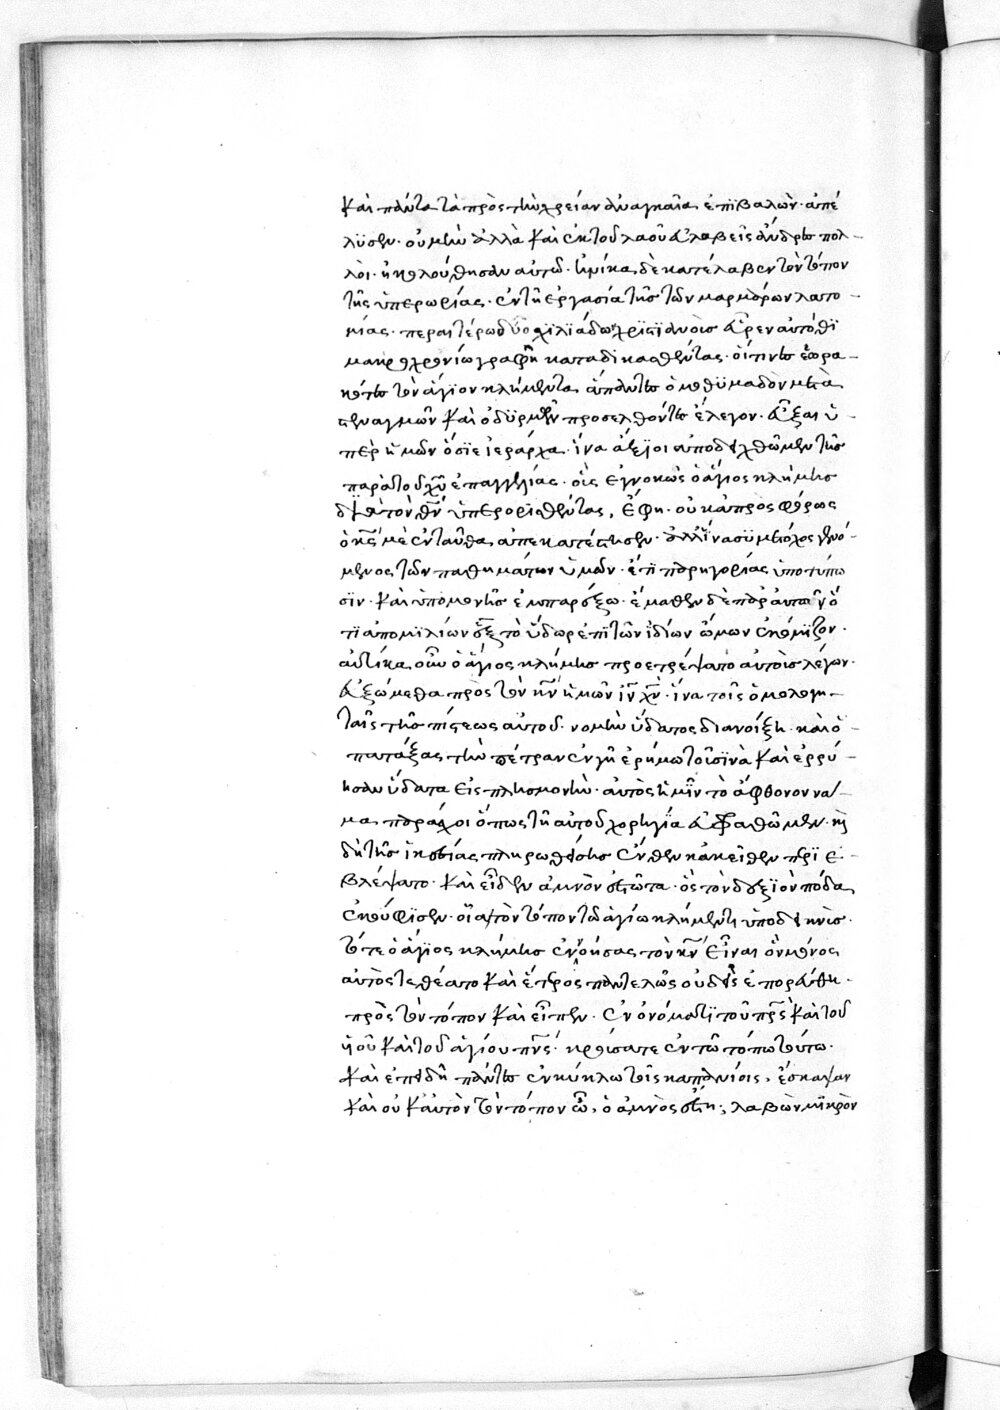 καὶ πάντα τὰ πρὸς τὴν χρείαν ἀναγκαῖα ἐπϊβαλὼν· ἀπέ
λϋσεν· οὐ μὴν ἀλλὰ καὶ ἐκ τοῦ λαοῦ εὐλαβεῖς ἄνδρες πολ-
λοὶ· ἠκολούθησαν αὐτῶ· ἡνίκα δὲ κατέλαβεν τὸν τόπον
τῆς ὑπερωρίας· ἐν τῆ ἐργασία τῆς τῶν μαρμάρων λατο-
μίας· περαιτέρω δύο χιλιάδων χριστϊανοὺς εὗρεν αὐτόθϊ
μακροχρονίω γραφῆ καταδικασθέντας· οἵτινες ἑωρα-
κότες τὸν ἅγϊον κλήμεντα ἅπαντες ὁμοθϋμαδὸν μετὰ
στεναγμῶν καὶ ὀδϋρμῶν προσελθόντες ἔλεγον· εὖξαι ὑ-
πὲρ ἡμῶν ὅσϊε ἱεράρχα· ἵνα ἄξϊοι ἀποδειχθῶμεν τῆς
παρὰ τοῦ χυ ἐπαγγελίας· οἷς ἐγνοκὼς ὁ ἅγιος κλήμης
διὰ τὸν θν ὑπερορισθέντας, ἔφη· οὐκ ἀπροσφόρως
ὁ κς μὲ ἐνταῦθα ἀπεκατέστησεν· ἀλλ' ἵνα σϋμέτοχος γενό-
μενος τῶν παθημάτων ὑμῶν· ἔτϊ παρηγορίας ὑποτύπω
σϊν· καὶ ὑπομονῆς ἐμπαρέξω· ἔμαθεν δὲ παρ' αὐτῶν ὅ
τϊ ἀπὸ μϊλίων ἓξ τὸ ὕδωρ ἐπὶ τῶν ἰδίων ὤμων ἐκόμϊζον·
αὐτίκα οὖν ὁ ἅγιος κλήμης προετρέψατο αὐτοὺς λέγων·
εὐξώμεθα πρὸς τὸν κν ἡμῶν ἰν χν· ἵνα τοῖς ὁμολογη-
ταῖς τῆς πίστεως αὐτοῦ· νομὴν ὕδατος διανοίξη· καὶ ὁ
πατάξας τὴν πέτραν ἐν γῆ ἐρήμω τοῦ σϊνὰ καὶ ἐρρύ-
ησαν ὕδατα εἰς πλησμονὴν· αὐτὸς ἡμῖν τὸ ἄφθονον νᾶ-
μα παράσχοι ὅπως τῆ αὐτοῦ χορηγϊα εὐφρανθῶμεν· καὶ
δὴ τῆς ἱκεσίας πληρωθείσης ἔνθεν κἀκεῖθεν περϊε-
βλέψατο· καὶ εἶδεν ἀμνὸν ἑστῶτα· ὃς τὸν δεξϊὸν πόδα
ἐκούφϊσεν· οἷα τὸν τόπον τῶ ἁγίω κλήμεντι ὑποδεικνὺς·
τότε ὁ ἅγϊος κλήμης ἐννοήσας τὸν κν εἶναι ὃν μόνος
αὐτὸς τεθέατο καὶ ἕτερος παντελῶς οὐδεὶς ἐπορεύθη·
πρὸς τὸν τόπον καὶ εἶπεν· ἐν ὀνόματϊ τοῦ πρς καὶ τοῦ
υἱοῦ καὶ τοῦ ἁγίου πνς· κρούσατε ἐν τῶ τόπω τούτω·
καὶ ἐπειδὴ πάντες ἐν κύκλω τοῖς καπανίοις, ἔσκαψαν
καὶ οὐ κατ' αὐτὸν τὸν τόπον ὧ, ὁ ἀμνὸς ἔστη; λαβὼν μϊκρὸν